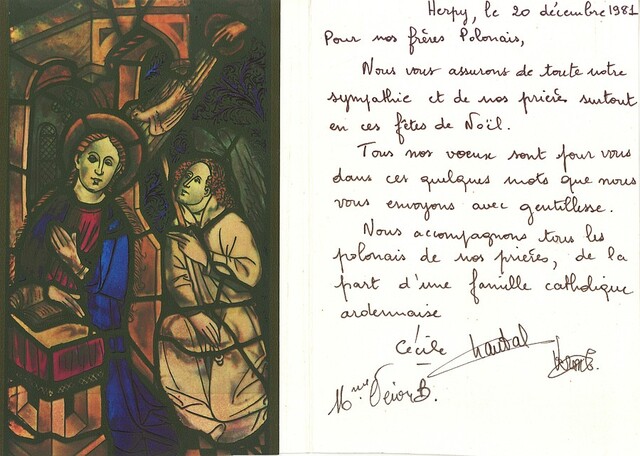 Herpy, le 20 décembre 1981
Pour nos frères Polonais,
Nous vous assurons de toute notre
sympathie et de nos prières surtout
en ces fêtes de Noël.
Tous nos voeux sont pour vous
dans ces quelques mots que nous
vous envoyons avec gentillesse.
Nous accompagnons tous les
polonais de nos prières, de la
part d'une famille catholique
ardennaise
Cécile
Mme